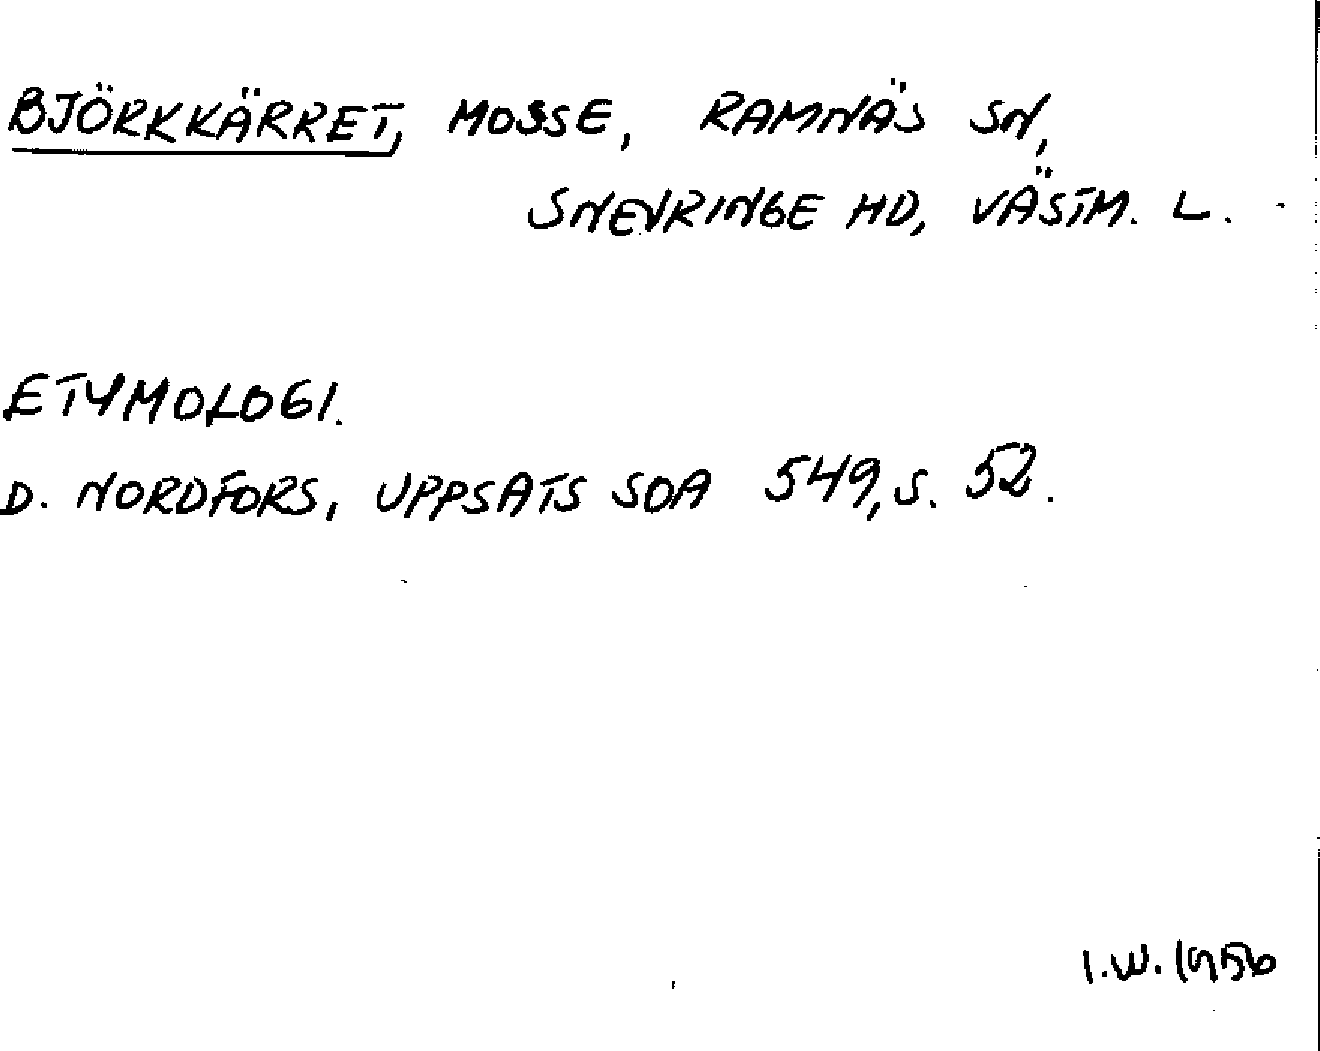 BJÖRKKÄRRET, MOSSE, RAMNÄS SN,
SNEVRINGE HD, VÄSTM. L.
ETYMOLOGI.
D. NORDFORS, UPPSATS SOA 549, S. 52.
I.W. 1956